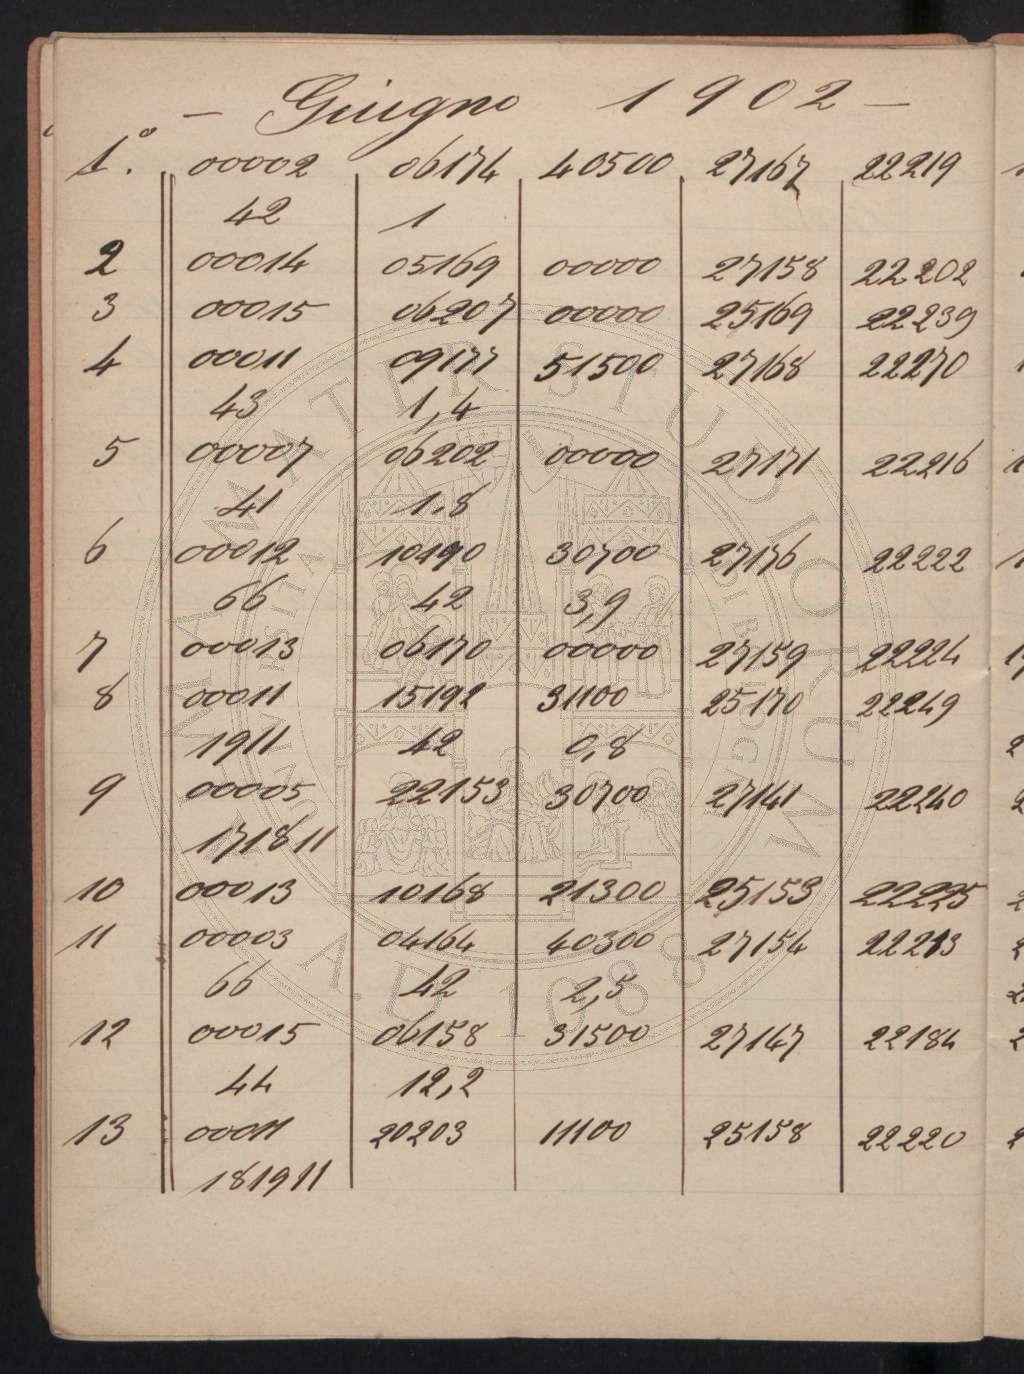 — Giugno 1902 —
1.° 00002 06174 40500 27167 22219
42 1
2 00014 05169 00000 27158 22202
3 00015 06207 00000 25169 22239
4 00011 09177 51500 27168 22270
43 1,4
5 00007 06202 00000 27171 22216
41 1.8
6 00012 10190 30700 27176 22222
66 42 3,9
7 00013 06170 00000 27159 22224
8 00011 15192 31100 25170 22249
1911 42 0,8
9 00005 22153 30700 27141 22240
171811
10 00013 10168 21300 25153 22225
11 00003 04164 40300 27154 22213
66 42 2,5
12 00015 06158 31500 27147 22184
44 12,2
13 00011 20203 11100 25158 22220
181911
ALMA MATER STUDIORUM
A.D. 1088